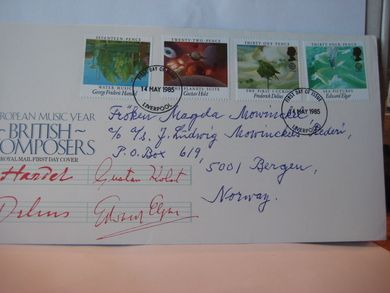 SEVENTEEN PENCE
WATER MUSIC
George Frideric Handel
TWENTY-TWO PENCE
PLANETS SUITE
Gustav Holst
THIRTY-ONE PENCE
THE FIRST CUCKOO
Frederick Delius
THIRTY-FOUR PENCE
SEA PICTURES
Edward Elgar
FIRST DAY OF ISSUE
14 MAY 1985
LIVERPOOL
FIRST DAY OF ISSUE
14 MAY 1985
LIVERPOOL
EUROPEAN MUSIC YEAR
BRITISH
COMPOSERS
ROYAL MAIL FIRST DAY COVER
Handel
Gustav Holst
Delius
Edward Elgar
Frøken Magda Mowinckel
c/o A/s. J. Ludwig Mowinckels Rederi,
P.O. Box 619,
5001 Bergen,
Norway.